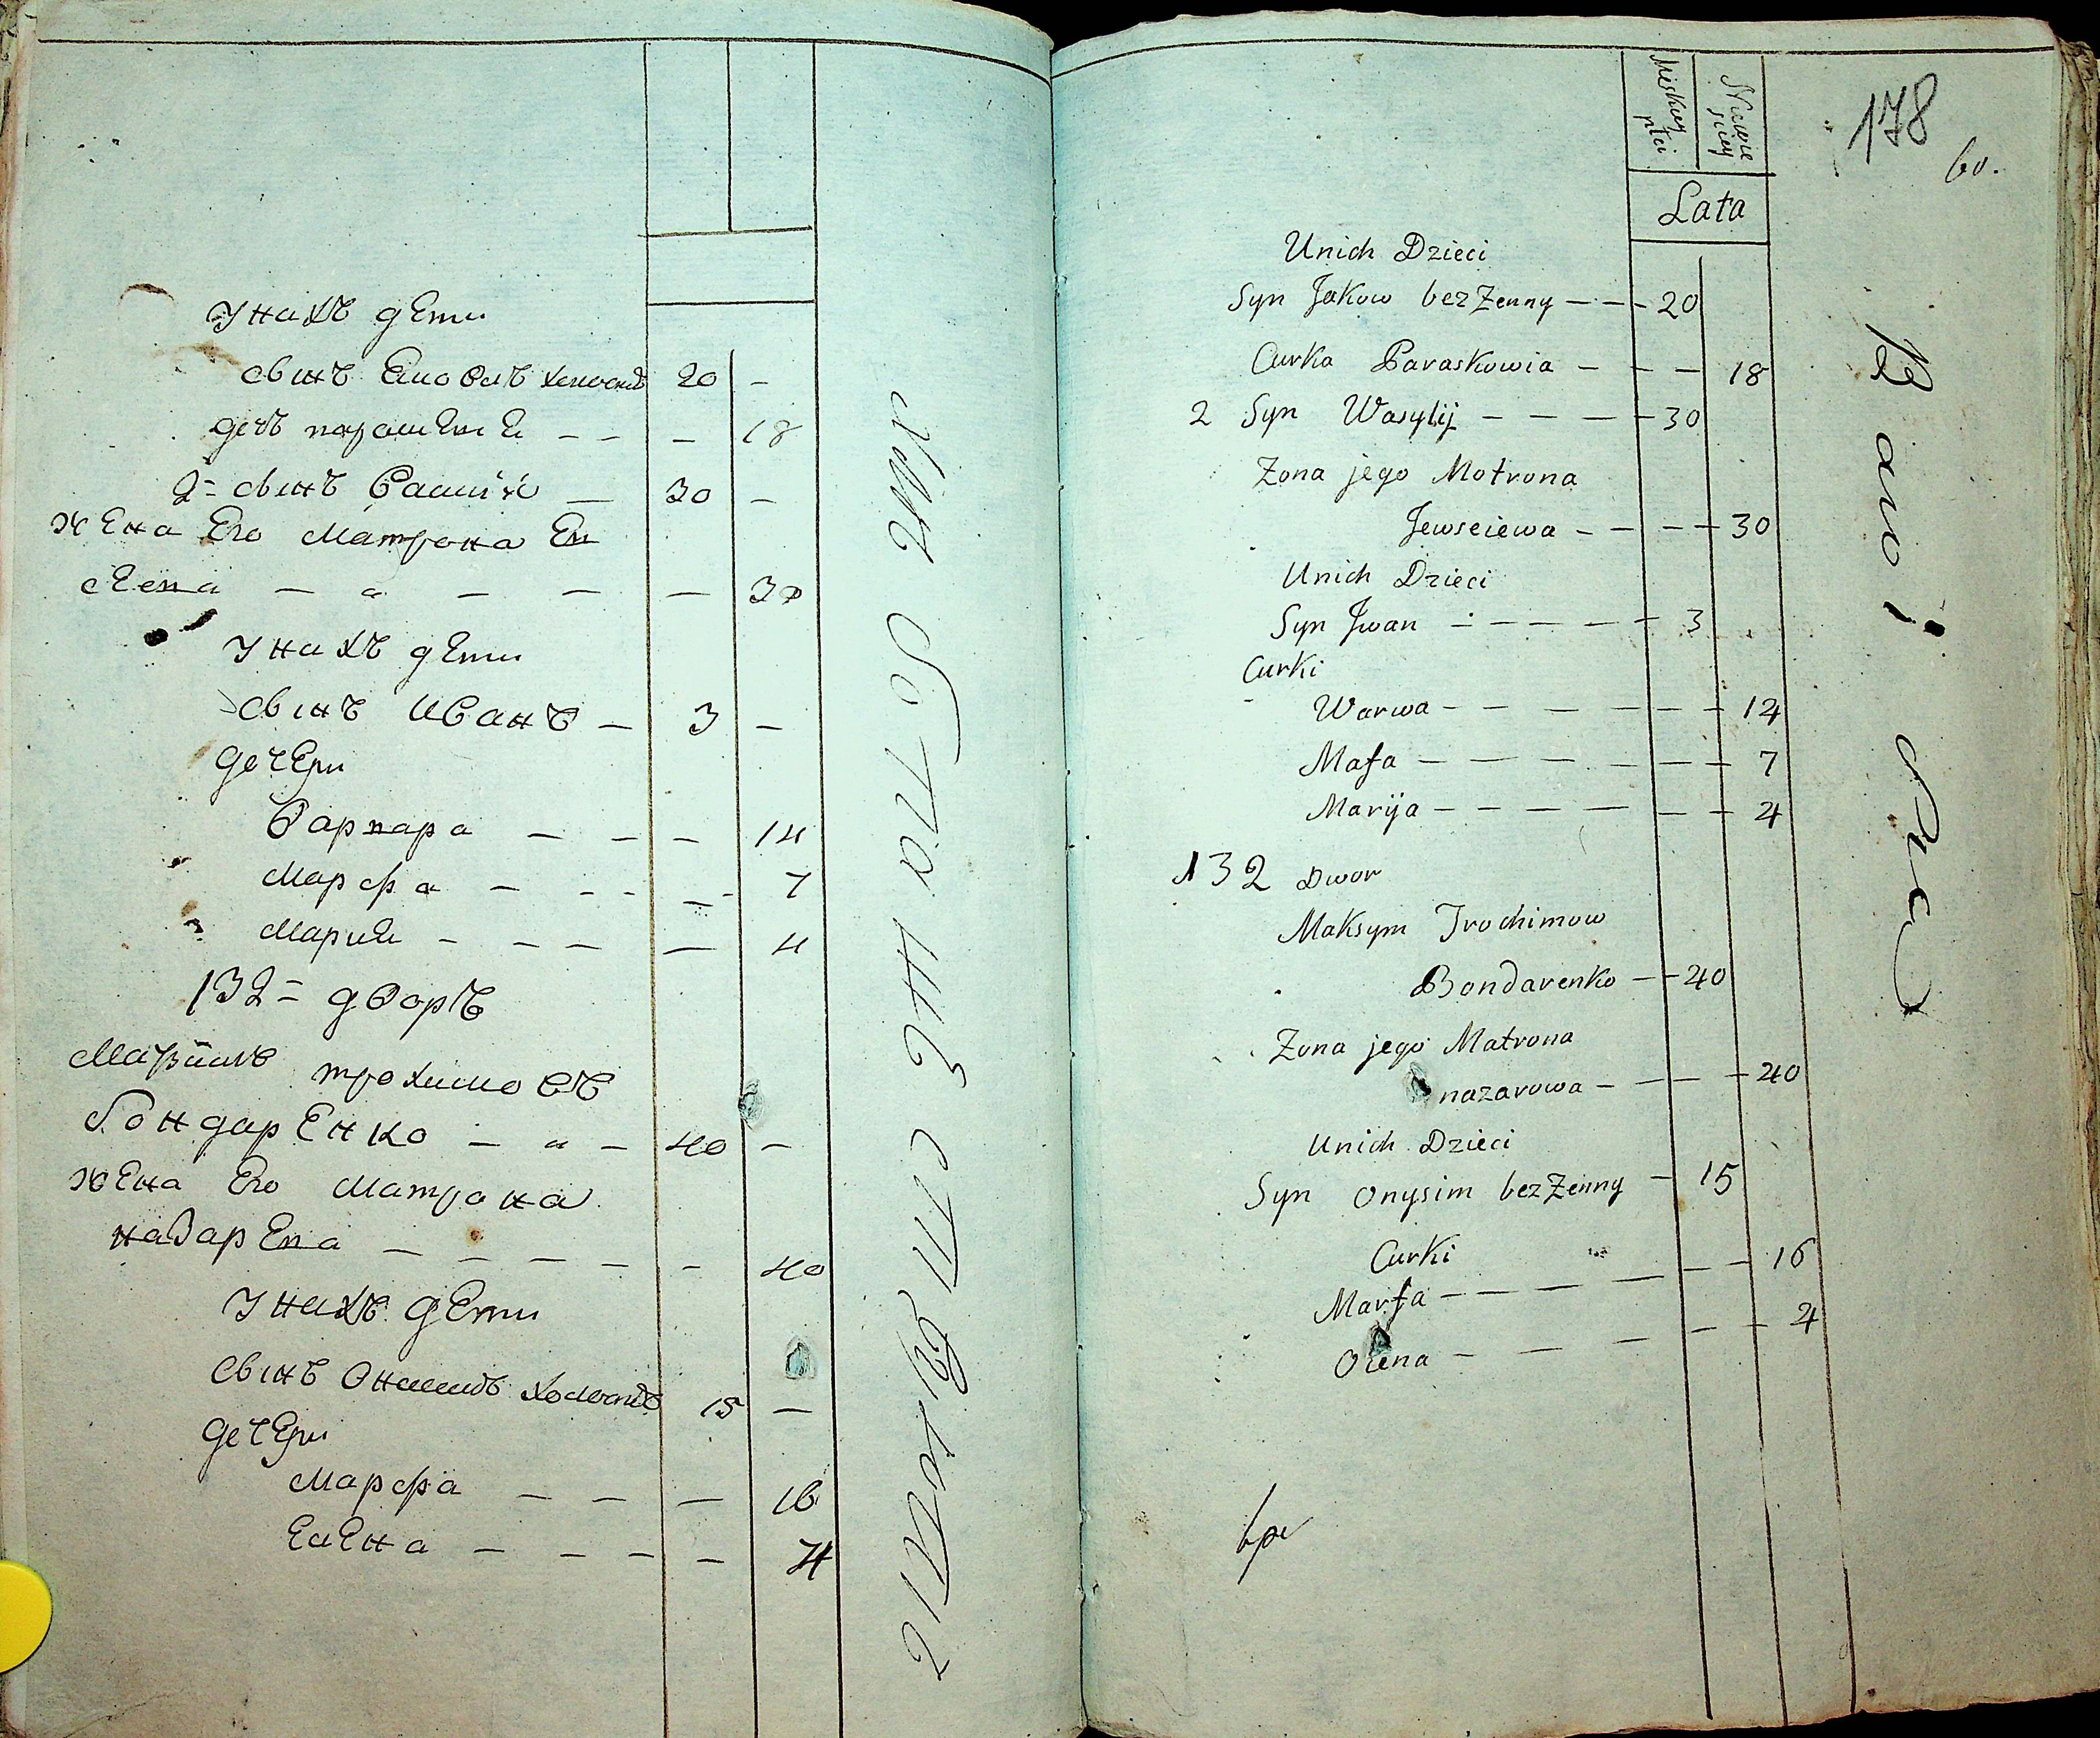 У нихъ дети
сынъ Ековъ холостъ 20 –
дочъ парасκевия – – – 18
2= сынъ Василiй – 30 –
жена Его Матрона Ев
сеева – – – – – 30
У нихъ дети
сынъ Иванъ – 3 –
дочери
Варвара – – – 14
Марфа – – – – 7
Мария – – – – 4
132= дворъ
Мартинъ трохимовъ
бондаренко – – – 40 –
жена Его Матрона
назарева – – – – – 40
У нихъ дети
сынъ Онисимъ холостъ 15 –
дочери
Марфа – – – 16
Елена – – – – 4
178
60.
Męskey płci
Niewie sciey
Lata
Unich Dzieci
Syn Jakow bez Zenny – – – 20
Curka Paraskowia – – – 18
2 Syn Wasylij – – – – 30
Zona jego Motrona
Jewseiewa – – – – 30
Unich Dzieci
Syn Jwan – – – – – 3
Curki
Warwa – – – – – – – 14
Mafa – – – – – – – 7
Marija – – – – – – 4
132 Dwor
Maksym Trochimow
Bondarenko – – 40
Zona jego Matrona
nazarowa – – – – 40
Unich Dzieci
Syn Onysim bez Zenny – 15
Curki
Marfa – – – – – – 16
Olena – – – – – 4